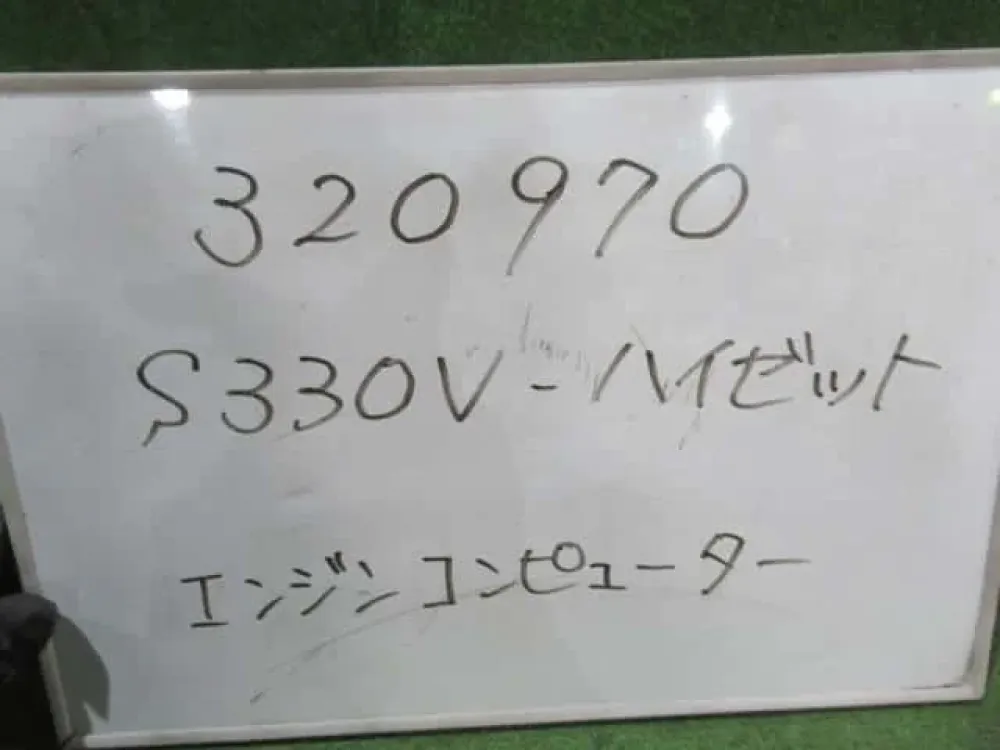 320970
S330V-ハイゼット
エンジンコンピューター